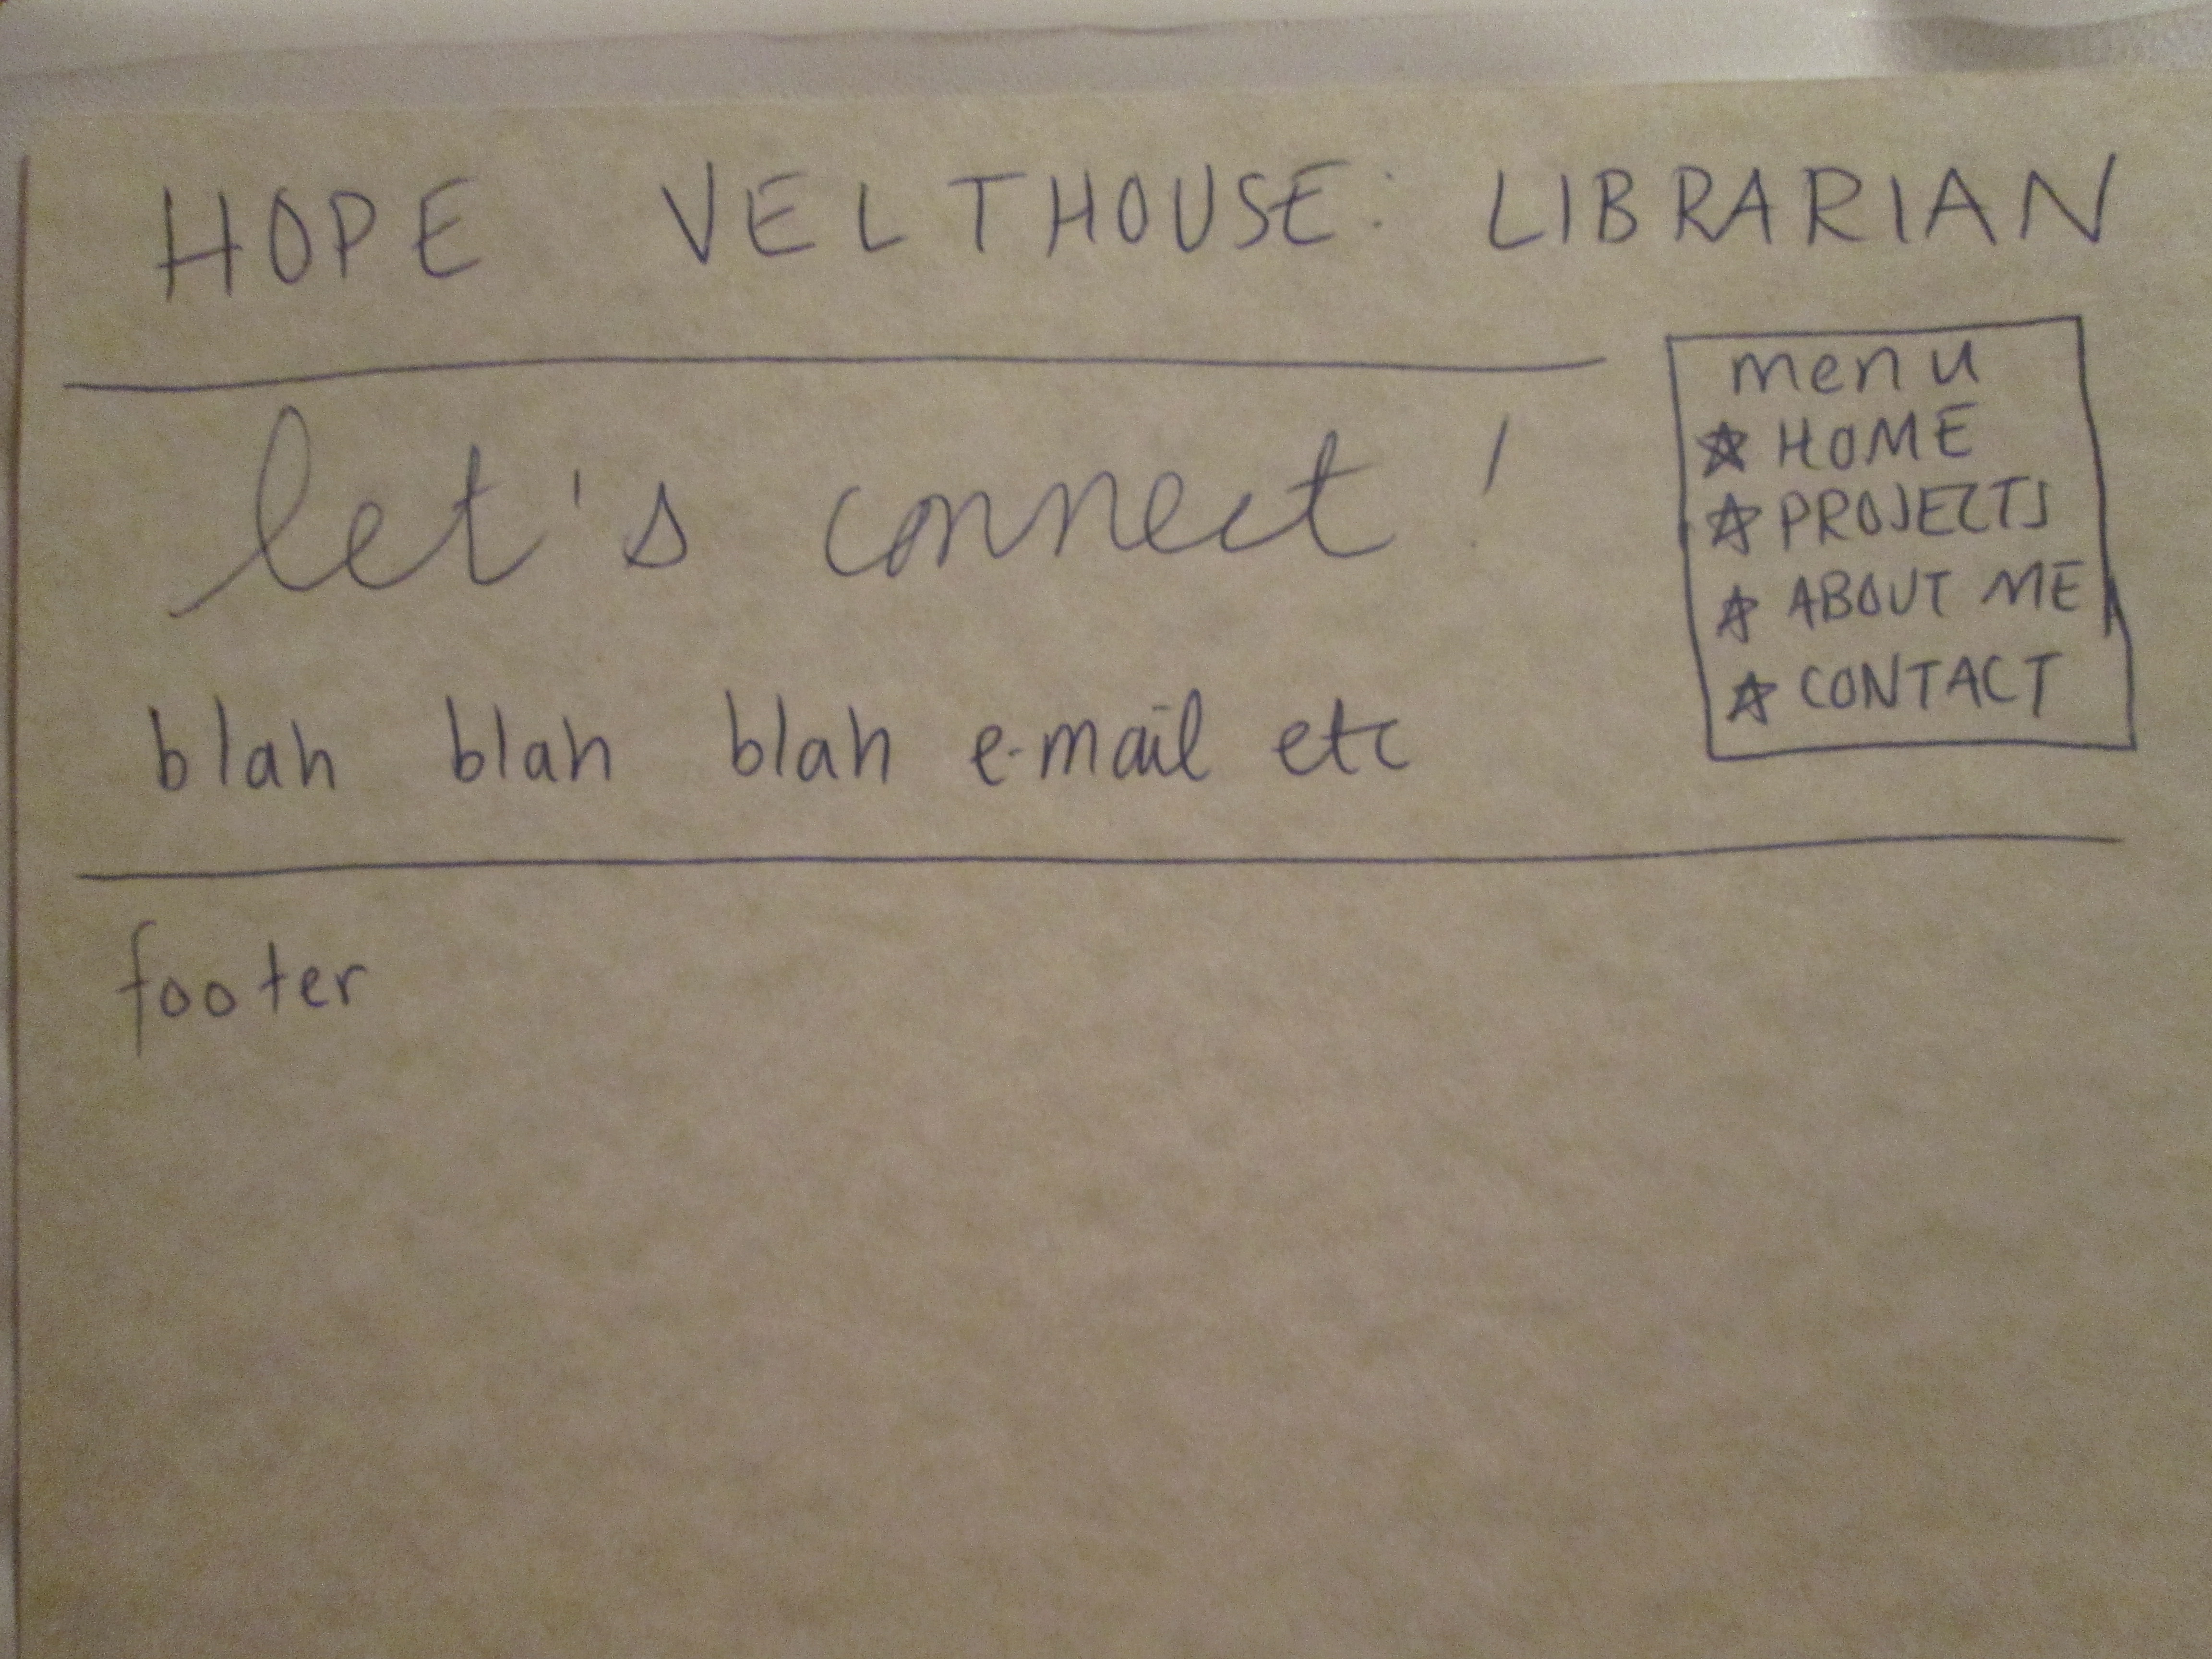 HOPE VELTHOUSE: LIBRARIAN
let's connect!
blah blah blah e-mail etc
menu
☆ HOME
☆ PROJECTS
☆ ABOUT ME
☆ CONTACT
footer